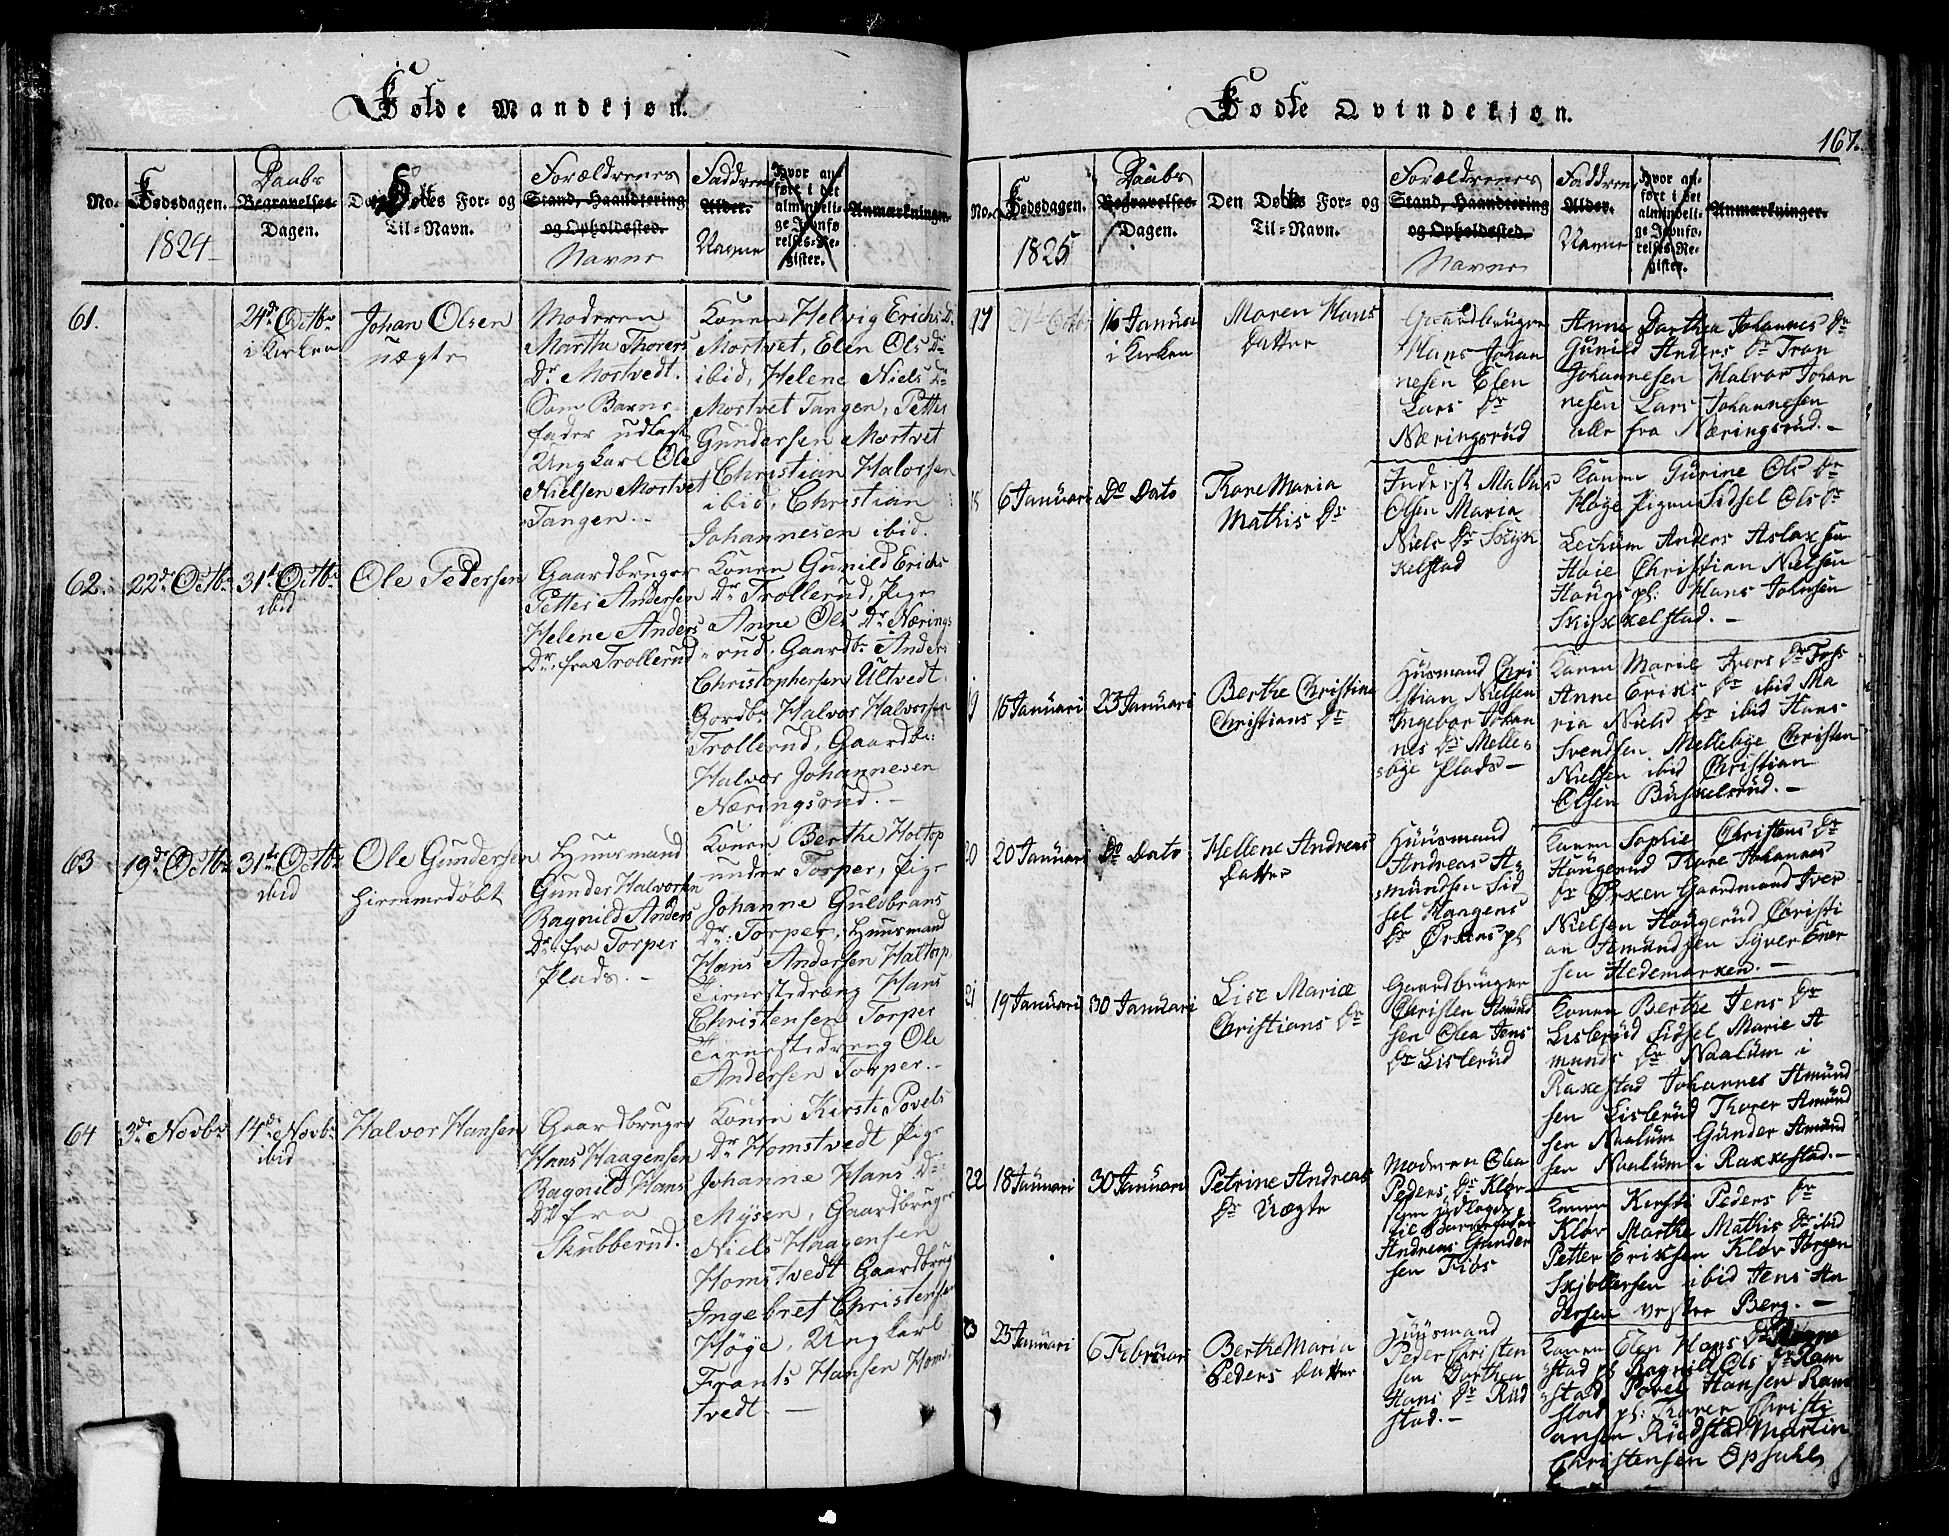 Fødde Mandkjøn.
No.
Fødsdagen.
1824
Daabs
Begravelses-
Dagen.
Døbtes For- og
Til-Navn.
Forældrenes
Stand, Haandtering
og Opholdssted.
Navne
Faddrenes
Alder.
Navne
Hvor an-
ført i det
almindeli-
ge Jevnfø-
relses-Re-
gister.
Anmærkninger.
61.
24de Octbr
i Kirken
Johan Olsen
uægte
Moderen
Marthe Thorers
Dr Mortvedt.
Som Barne-
fader udlagt
Ungkarl Ole
Nielsen Mortvet
Tangen.-
Konen Helvig Erichs D:
Mortvet, Elen Ols Dr
ibid, Helene Niels Dr
Mortvet Tangen, Petter
Gundersen Mortvet
Christian Halvorsen
ibid, Christian
Johannesen ibid.
62.
22de Octbr
31te Octbr
ibid
Ole Pedersen
Gaardbruger
Petter Andersen
Helene Anders
Dr fra Trollerud
Konen Gunild Erichs
Dr Trollerud, Pige
Anne Ols Dr Nærings
rud, Gaardbr Anders
Christophersen Ultvedt.
Gordbr Halvor Halvorsen
Trollerud, Gaardbr:
Halvor Johannesen
Næringsrud.-
63
19de Octbr
31te Octbr
ibid
Ole Gundersen
hiemmedøbt
Huusmand
Gunder Halvorsen
Ragnild Anders
Dr: fra Torper
Plads.-
Konen Berthe Holtop
under Torper, Pige
Johanne Guldbrans
Dr: Torper, Huusmand
Hans Andersen Haltop
Tienestedræng Hans
Christensen Torper
Tienestedreng Ole
Andersen Torper.-
64
3de Novbr
14de Novbr
ibid
Halvor Hansen
Gaardbruger
Hans Haagensen
Ragnild Hans
Dr fra
Skubberud.
Konen Kirsti Povels
Dr Homstvedt Pige
Johanne Hans Dr:
Mysen, Gaardbruger
Niels Haagensen
Homstvedt Gaardbrug
Ingebret Christensen
Høye, Ungkarl
Frants Hansen Homs
tvedt -
Fødte Qvindekjøn.
167.
No.
Fødsdagen.
1825
Daabs
Begravelses-
Dagen.
Den Døbtes For- og
Til-Navn.
Forældrenes
Stand, Haandtering
og Opholdssted.
Navne
Faddrenes
Alder.
Navne
Hvor an-
ført i det
almindeli-
ge Jevnfø-
relses-Re-
gister.
Anmærkninger.
17
16 Januar
i Kirken
Maren Hans
Datter
Gaardbruger
Hans Johan
nesen Elen
Lars Dr
Næringsrud
Anne Dorthea Johannes Dr
Gunild Anders Dr Tron
Johannesen Halvor Johan
nesen Lars Johannesen
alle fra Næringsrud.-
6 Januari
Do Dato
Thore Maria
Mathis Dr
Inderst Mathis
Olsen Maria
Niels Dr Skjæ
kelstad
Konen Gurine Ols Dr
Høge Pigen Sidsel Ols Dr
Lechum Anders Aslaxsen
Haie Christian Nielsen
Hougs pl: Hans Johnsen
Skjækkelstad.-
16 Januari
23 Januari
Berthe Christine
Christians Dr
Huusmand Chri
stian Nielsen
Ingebor Johan
nes Dr Melle
bye Plads-
Konen Marie Ivers Dr Foss
Anne Erixs Dr ibid Ma
ria Niels Dr ibid Hans
Svendsen Mellebye Christen
Nielsen ibid Christian
Olsen Buskelsrud.-
20
20 Januari
Do Dato
Hellene Andreas
Datter
Huusmand
Andreas As
mundsen Sid
sel Haagens
Dr Ørkens pl
Konen Sophie Christens Dr
Hougerud Thore Johannes
Dr Ørken Gaardmand Iver
Nielsen Hougerud Christi
an Amundsen Syver Ener
sen Hedemarken.-
21
19 Januari
30 Januari
Lise Marie
Christians Dr
Gaardbruger
Christen Amund
sen Olea Jens
Dr Lislerud
Konen Berthe Jens Dr
Lislerud Sidsel Marie A
munds Dr Naalum i
Raxestad Johannes Amund
sen Lislerud Thorer Amund
sen Naalum Gunder Amund
sen Naalum i Rakkestad.-
22
18 Januari
30 Januari
Petrine Andreas
Dr Uægte
Moderen Olea
Peders Dr Kløv
som udlagde
til Barnefader
Andreas Gunder
sen Fiøs
Konen Kirsti Peders Dr
Kløv Marthe Mathis Dr ibid
Petter Erixsen Kløv Jørgen
Skjøllersen ibid Jens An
dersen vestre Berg.-
23
23 Januari
6 Februari
Berthe Maria
Peders Datter
Huusmand
Peder Christen
sen Dorthea
Hans Dr Rud
stad.-
Konen Elen Hans Dr
stad pl Ragnild Ols Dr Ram
stad Povel Hansen Ram
stad pl: Thorer Christi
ansen Rudstad Martin
Christensen Opsahl